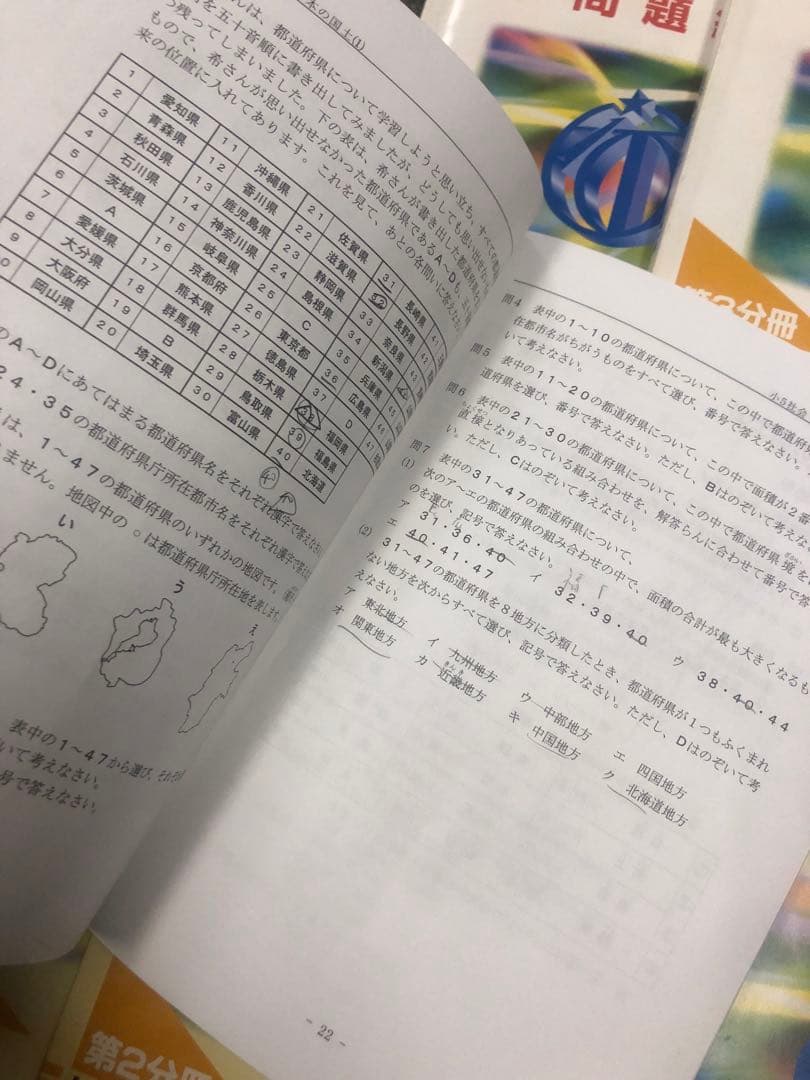 本の国土(1)
んは、都道府県について学習しようと思い立ち、すべての都道
を五十音順に書き出してみましたが、どうしても思い出せな
っ残ってしまいました。下の表は、希さんが書き出した都道府県を
もので、希さんが思い出せなかった都道府県であるA～Dも、
来の位置に入れてあります。これを見て、あとの各問いに答え
1 愛知県 11 沖縄県 21 佐賀県 31 長崎県 41
2 青森県 12 香川県 22 滋賀県 32 長野県 42
3 秋田県 13 鹿児島県 23 静岡県 33 奈良県 43
4 石川県 14 神奈川県 24 島根県 34 新潟県
5 茨城県 15 岐阜県 25 C 35 兵庫県 45
6 A 16 京都府 26 東京都 36 広島県 46
7 愛媛県 17 熊本県 27 徳島県 37 D 47
8 大分県 18 群馬県 28 栃木県 福岡県
9 大阪府 19 B 29 鳥取県 39 福島県
0 岡山県 20 埼玉県 30 富山県 40 北海道
のA～Dにあてはまる都道府県名をそれぞれ漢字で答えなさい
24・35の都道府県庁所在都市名をそれぞれ漢字で答え
は、1～47の都道府県のいずれかの地図です。
ません。地図中の○は都道府県庁所在地を表します。
い
う
え
表中の1～47から選び、それぞれ
いて考えなさい。
号で答えなさい。
問題
第3分冊
小5社会
問4 表中の1～10の都道府県について、この中で都道府県
在都市名がちがうものをすべて選び、番号で答えなさい。
いて考えなさい。
問5 表中の11～20の都道府県について、この中で面積が2番
道府県を選び、番号で答えなさい。ただし、Bはのぞいて考えな
問6 表中の21～30の都道府県について、この中で都道府県境を
直接となりあっている組み合わせを、解答らんに合わせて番号で答
い。ただし、Cはのぞいて考えなさい。
問7 表中の31～47の都道府県について、
(1) 次のア～エの都道府県の組み合わせの中で、面積の合計が最も大きくなるも
のを選び、記号で答えなさい。
ア 31・36・40 イ 32・39・40 ウ 38・40・44
エ 40・41・47
(2) 31～47の都道府県を8地方に分類したとき、都道府県が1つもふくまれ
ない地方を次からすべて選び、記号で答えなさい。ただし、Dはのぞいて考
えなさい。
ア 東北地方 イ 九州地方 ウ 中部地方 エ 四国地方
オ 関東地方 カ 近畿地方 キ 中国地方 ク 北海道地方
- 22 -
第2分冊